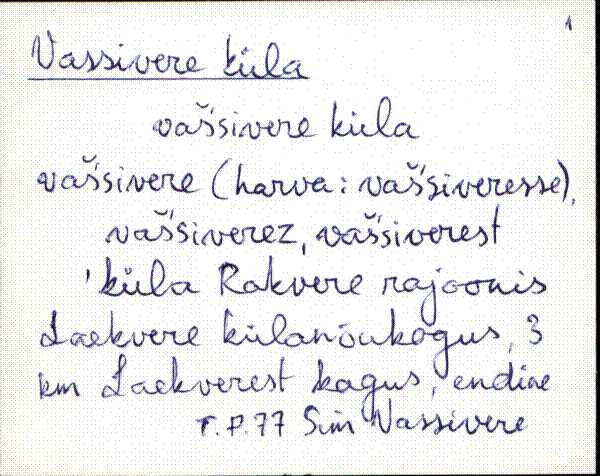 1
Vassivere küla
vaš́sivere küla
vaš́sivere (harva: vaš́siveresse),
vaš́siverez, vaš́siverest
'küla Rakvere rajoonis
Laekvere külanõukogus, 3
km Laekverest kagus, endine
T.P.77 Sim Vassivere